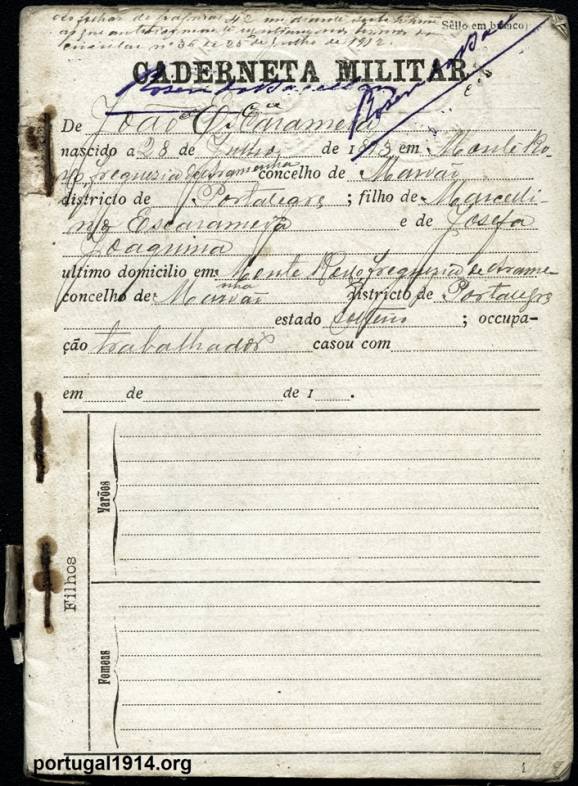 Sêllo em branco
circular nº 36 de 25 de Julho de 1912.
CADERNETA MILITAR
De João Escarameia
nascido a 28 de Julho de 1893 em Monte Ro-
freguezia de Aramenha concelho de Marvão
districto de Portalegre ; filho de Marceli-
no Escarameia e de Josefa
Joaquina
ultimo domicilio em Monte freguezia de Arame-
nha
concelho de Marvão Districto de Portalegre
estado solteiro ; occupa-
ção trabalhador casou com
em de de 1 .
Filhos
Varões
Femeas
1
portugal1914.org